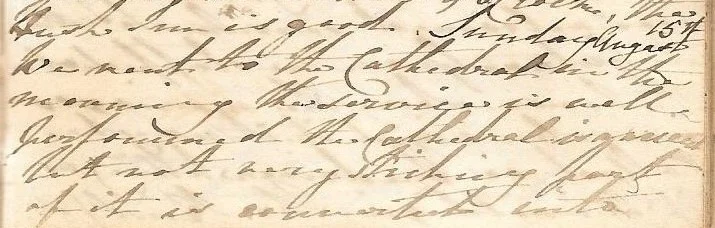 of a Cock, the
Bush Inn is good. Sunday 15th August
We went to the Cathedral in the
morning the service is well
performed the Cathedral is
but not very striking part
of it is converted into